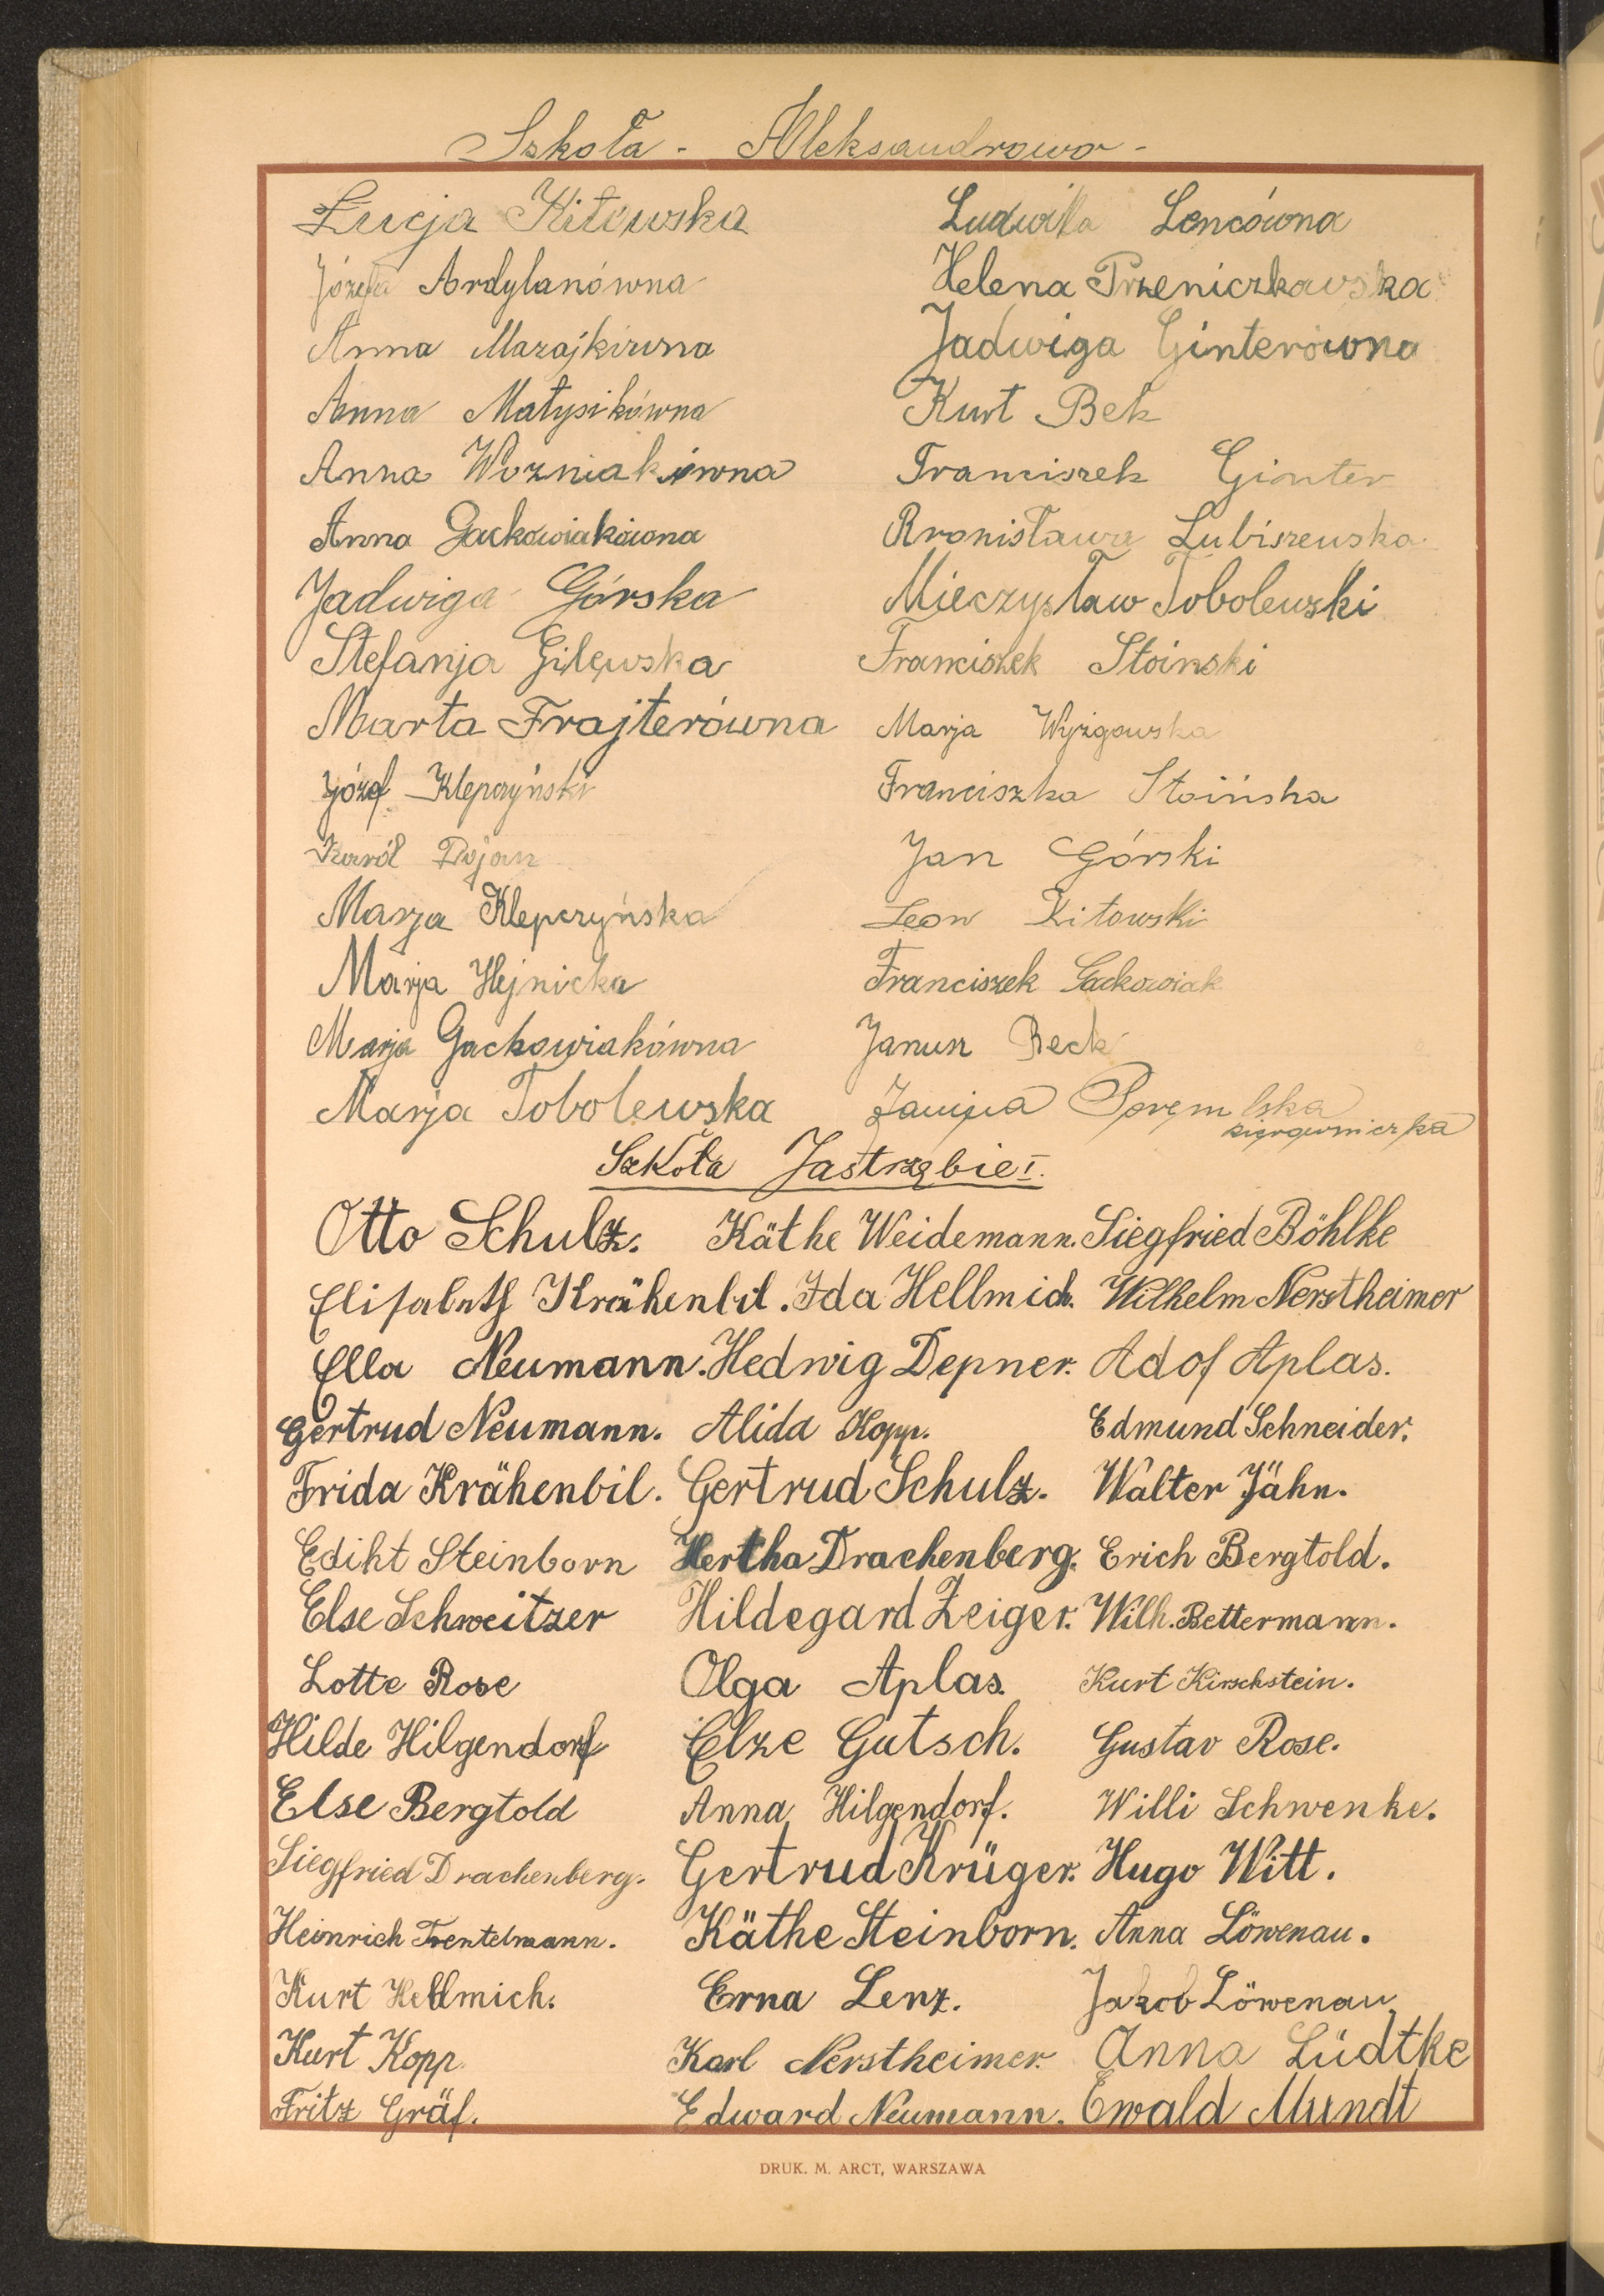 Szkoła - Aleksandrowo -
Łucja Kitowska Ludwika Lencówna
Józefa Ardylanówna Helena Przeniczkowska
Anna Marajkówna Jadwiga Ginterówna
Anna Matysikówna Kurt Bek
Anna Wozniakówna Franciszek Ginter
Anna Gackowiakówna Bronisława Lubiszewska
Jadwiga Górska Mieczysław Tobolewski
Stefanja Gilewska Franciszek Stoinski
Marta Frajterówna Marja Wyżgowska
Józef Klepczyński Franciszka Stoińska
Karól Dojan Jan Górski
Marja Klepczyńska Leon Kitowski
Marja Hejnicka Franciszek Gackowiak
Marja Gackowiakówna Janusz Beck
Marja Tobolewska Janina
kierowniczka
Szkoła Jastrzębie I.
Otto Schulz. Käthe Weidemann. Siegfried Böhlke
Elisabeth Krähenbil. Ida Hellmich. Wilhelm Nerstheimer
Ella Neumann. Hedwig Depner. Adof Aplas.
Gertrud Neumann. Alida Kopp. Edmund Schneider.
Frida Krähenbil. Gertrud Schulz. Walter Jähn.
Ediht Steinborn Hertha Drachenberg. Erich Bergtold.
Else Schweitzer Hildegard Zeiger. Wilh. Bettermann.
Lotte Rose Olga Aplas. Kurt Kirschstein.
Hilde Hilgendorf Elze Gutsch. Gustav Rose.
Else Bergtold Anna Hilgendorf. Willi Schwenke.
Siegfried Drachenberg. Gertrud Krüger. Hugo Witt.
Heinrich Trentelmann. Käthe Steinborn. Anna Löwenau.
Kurt Hellmich. Erna Lenz. Jakob Löwenau
Kurt Kopp. Karl Nerstheimer. Anna Lüdtke
Fritz Gräf. Edward Neumann. Ewald Mundt
DRUK. M. ARCT, WARSZAWA